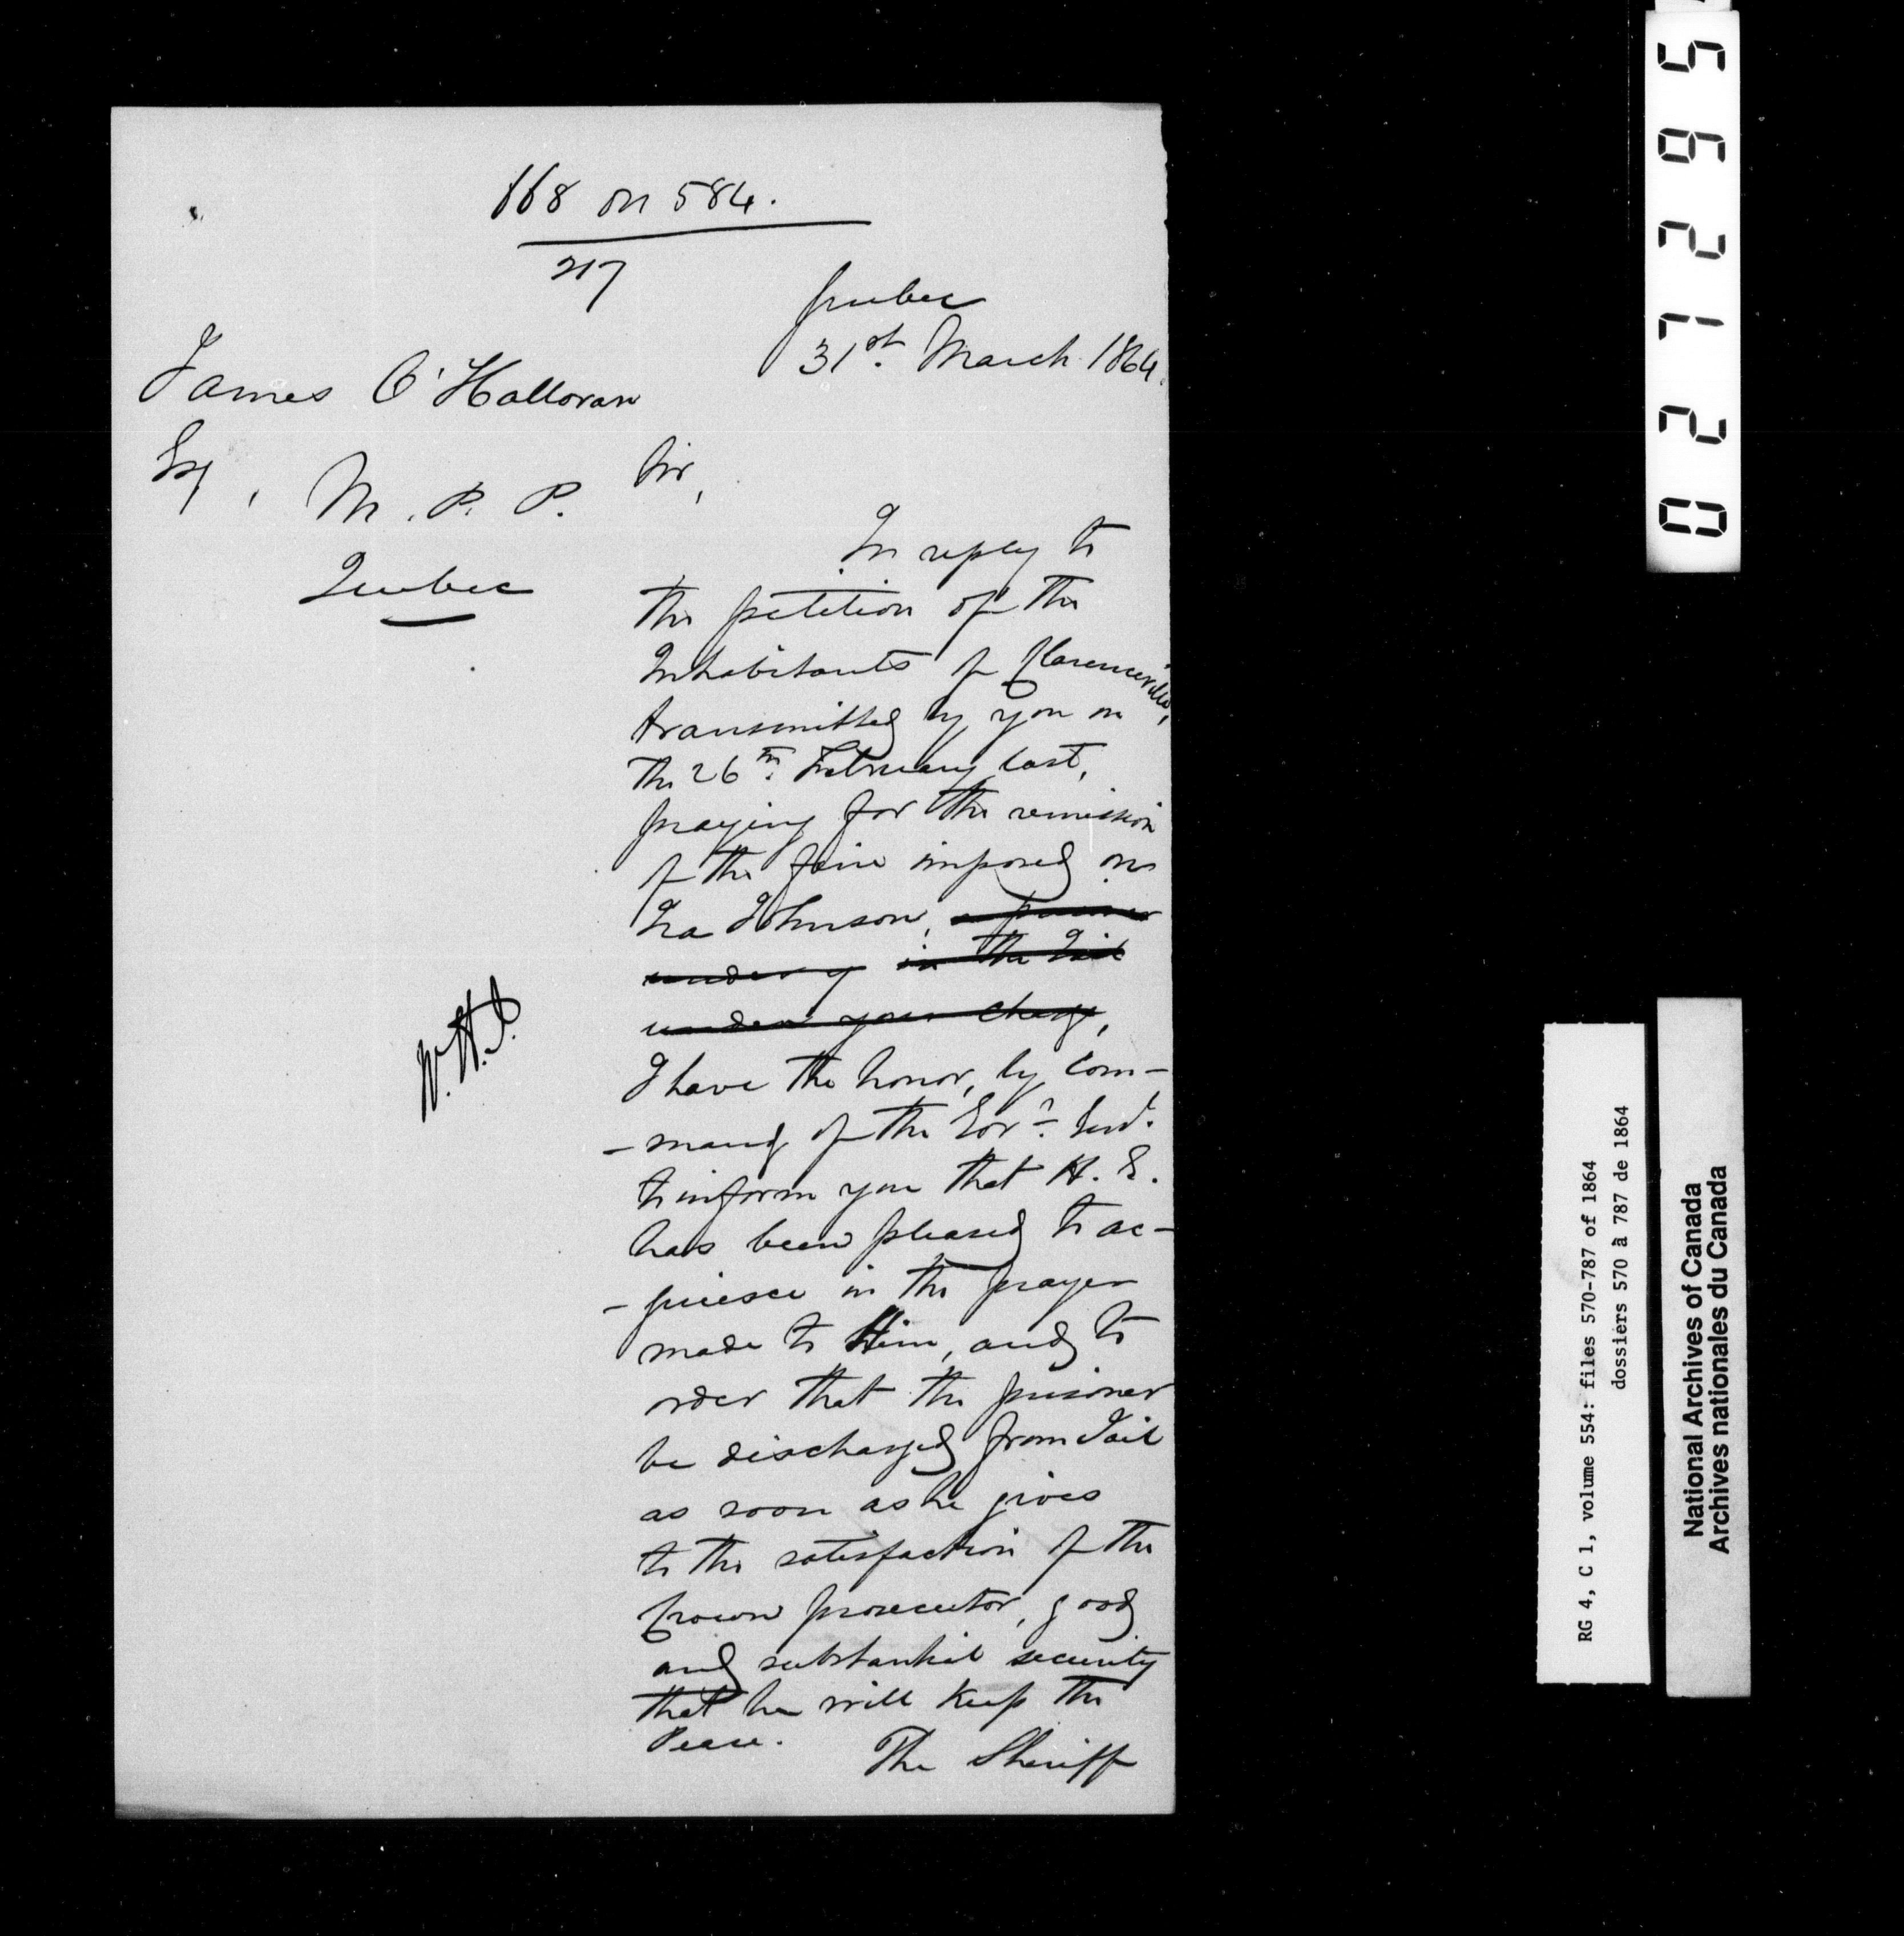 668 on 584.
217
Quebec
31st. March 1864.
James O'Halloran
Esq, M.P.P.
Quebec
Sir,
In reply to
the petition of the
Inhabitants of Clarenceville,
transmitted by you on
the 26th. February last,
praying for the remission
of the fine imposed on
Ira Johnson, a prisoner
under y in the Jail
under your charge,
I have the honor, by com-
-mand of the Govr. Genl.
to inform you that H. E.
has been pleased to ac-
-quiesce in the prayer
made to Him, and to
order that the prisoner
be discharged from Jail
as soon as he gives
to the satisfaction of the
Crown prosecutor, good
and substantial security
that he will keep the
Peace.
The Sheriff
W.H.J.
027295
RG 4, C 1, volume 554: files 570-787 of 1864
dossiers 570 à 787 de 1864
National Archives of Canada
Archives nationales du Canada